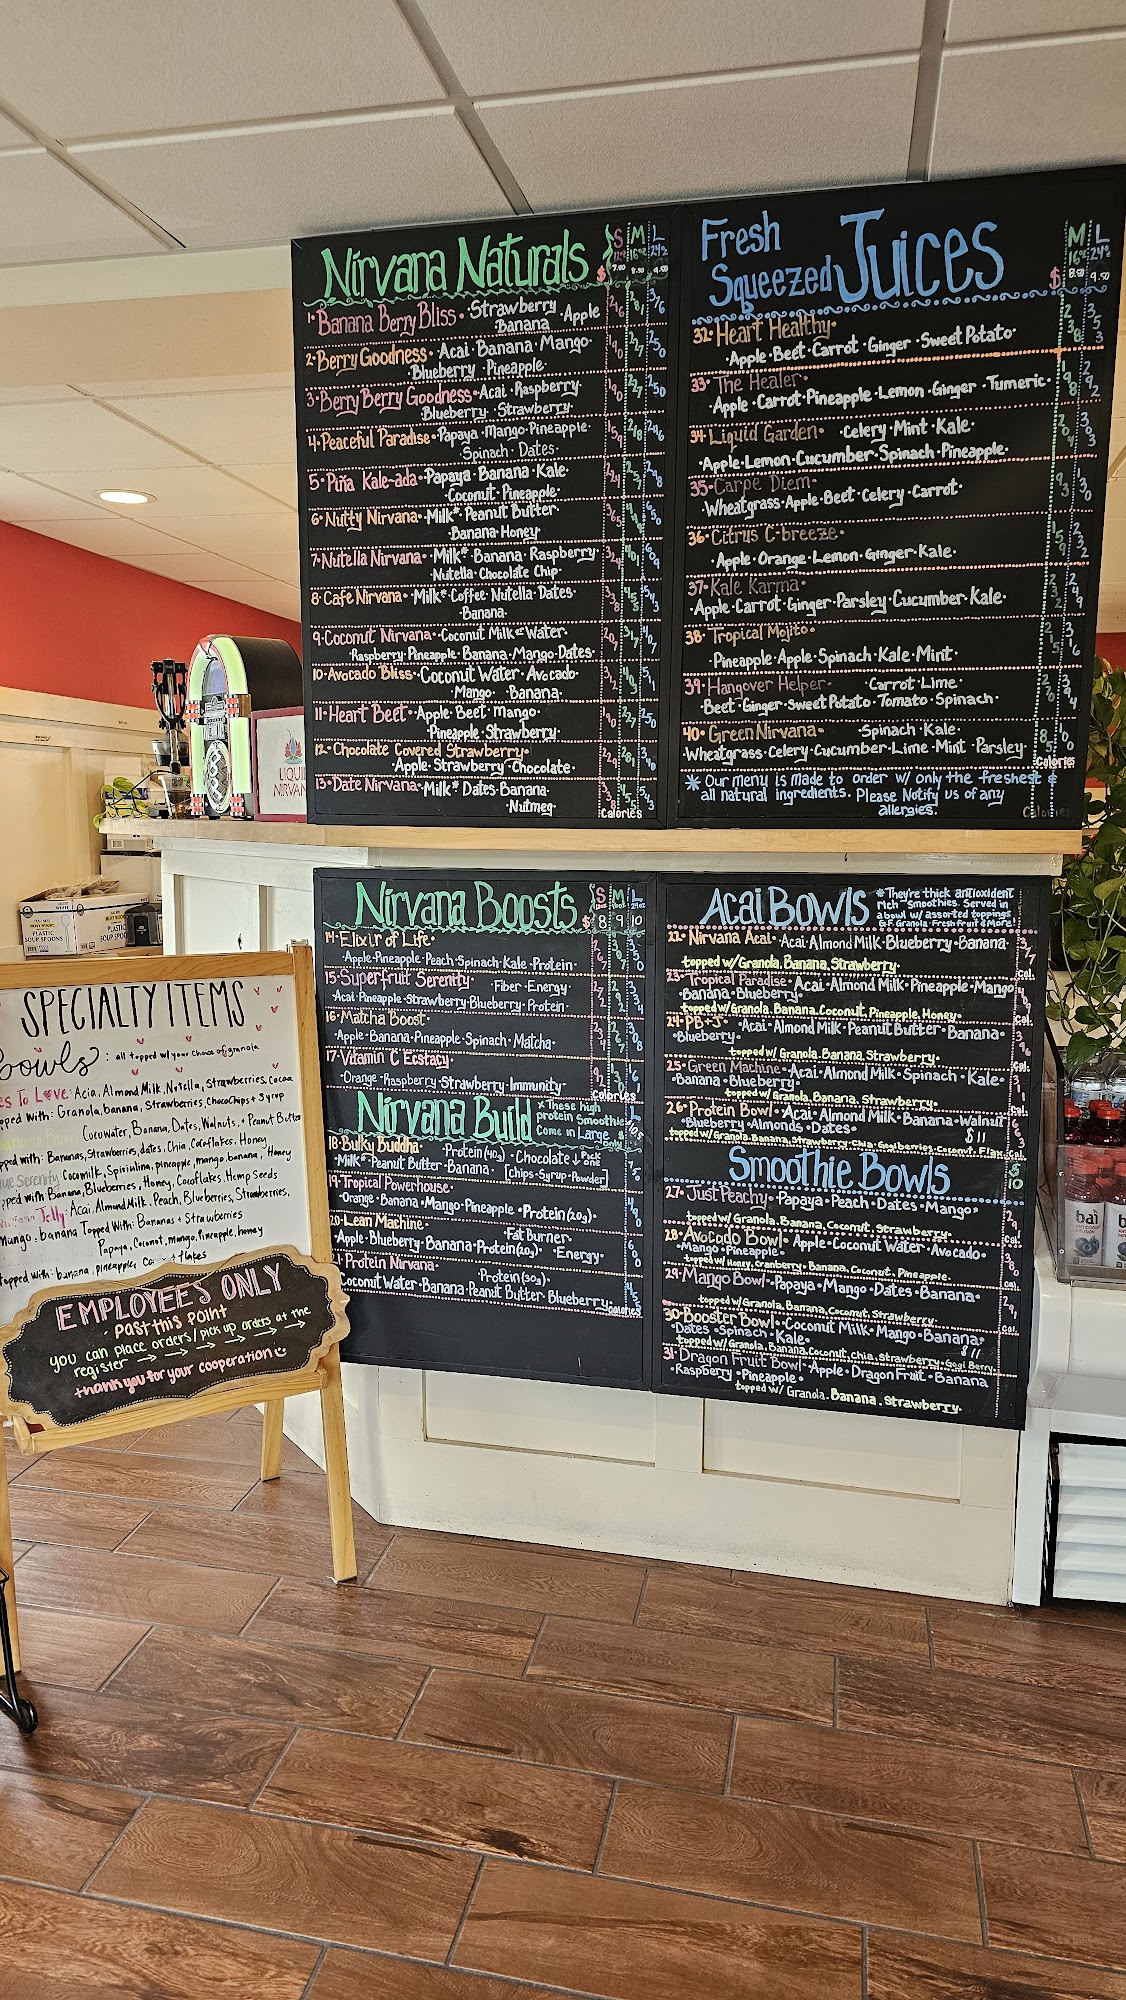 Nirvana Naturals
S M L
12oz 16oz 24oz
$ 7.50 8.50 9.50
1• Banana Berry Bliss • Strawberry
Banana • Apple
2• Berry Goodness • Acai • Banana • Mango
• Blueberry • Pineapple •
3• Berry Berry Goodness • Acai • Raspberry
Blueberry • Strawberry •
4• Peaceful Paradise • Papaya • Mango • Pineapple
Spinach • Dates •
5• Piña Kale-ada • Papaya • Banana • Kale •
• Coconut • Pineapple •
6• Nutty Nirvana • Milk* • Peanut Butter •
Banana • Honey
7• Nutella Nirvana • Milk* • Banana • Raspberry
• Nutella • Chocolate Chip •
8• Cafe Nirvana • Milk* • Coffee • Nutella • Dates •
Banana •
9• Coconut Nirvana • Coconut Milk or Water •
Raspberry • Pineapple • Banana • Mango • Dates •
10• Avocado Bliss • Coconut Water • Avocado •
Mango • Banana
11• Heart Beet • Apple • Beet • Mango •
Pineapple • Strawberry •
12• Chocolate Covered Strawberry •
• Apple • Strawberry • Chocolate •
13• Date Nirvana • Milk* • Dates • Banana •
Nutmeg •
Calories
Fresh Squeezed Juices
M L
16oz 24oz
$ 8.50 9.50
32• Heart Healthy •
• Apple • Beet • Carrot • Ginger • Sweet Potato •
33• The Healer •
• Apple • Carrot • Pineapple • Lemon • Ginger • Tumeric •
34• Liquid Garden • • Celery • Mint • Kale •
• Apple • Lemon • Cucumber • Spinach • Pineapple •
35• Carpe Diem •
Wheatgrass • Apple • Beet • Celery • Carrot •
36• Citrus C-breeze •
• Apple • Orange • Lemon • Ginger • Kale •
37• Kale Karma •
• Apple • Carrot • Ginger • Parsley • Cucumber • Kale •
38• Tropical Mojito •
• Pineapple • Apple • Spinach • Kale • Mint •
39• Hangover Helper • Carrot • Lime •
• Beet • Ginger • Sweet Potato • Tomato • Spinach •
40• Green Nirvana • Spinach • Kale •
Wheatgrass • Celery • Cucumber • Lime • Mint • Parsley
Calories
* Our menu is made to order w/ only the freshest &
all natural ingredients. Please Notify us of any
allergies.
Calories
LIQUID
NIRVANA
Nirvana Boosts
S M L
$ 8 9 10
14• Elixir of Life •
• Apple • Pineapple • Peach • Spinach • Kale • Protein •
15• Superfruit Serenity • Fiber • Energy •
• Acai • Pineapple • Strawberry • Blueberry • Protein •
16• Matcha Boost •
Apple • Banana • Pineapple • Spinach • Matcha •
17• Vitamin C Ecstacy •
• Orange • Raspberry • Strawberry • Immunity •
Calories
Nirvana Build
* These high
protein Smoothies
Come in Large
only
18• Bulky Buddha • Protein (40g) • Chocolate ↓ Pick one
• Milk* • Peanut Butter • Banana • [chips • Syrup • Powder]
19• Tropical Powerhouse •
• Orange • Banana • Mango • Pineapple • Protein (20g) •
20• Lean Machine • Fat Burner •
• Apple • Blueberry • Banana • Protein (20g) • • Energy •
21• Protein Nirvana • Protein (30g) •
Coconut Water • Banana • Peanut Butter • Blueberry •
Calories
Acai Bowls
* They're thick antioxident
rich Smoothies. Served in
a bowl w/ assorted toppings
G.F. Granola • Fresh fruit & More!
22• Nirvana Acai • Acai • Almond Milk • Blueberry • Banana •
topped w/ Granola, Banana, Strawberry •
23• Tropical Paradise • Acai • Almond Milk • Pineapple • Mango
• Banana • Blueberry •
topped w/ Granola, Banana, Coconut, Pineapple, Honey •
24• PB+J • Acai • Almond Milk • Peanut Butter • Banana •
• Blueberry •
topped w/ Granola, Banana, Strawberry •
25• Green Machine • Acai • Almond Milk • Spinach • Kale •
• Banana • Blueberry •
topped w/ Granola, Banana, Strawberry •
26• Protein Bowl • Acai • Almond Milk • Banana • Walnut
• Blueberry • Almonds • Dates • $11
topped w/ Granola, Banana, Strawberry, Chia, Goji berries, Coconut, Flax
Smoothie Bowls
$ 10
27• Just Peachy • Papaya • Peach • Dates • Mango •
topped w/ Granola, Banana, Coconut, Strawberry •
28• Avocado Bowl • Apple • Coconut Water • Avocado •
• Mango • Pineapple •
topped w/ Honey, Cranberry, Banana, Coconut, Pineapple
29• Mango Bowl • Papaya • Mango • Dates • Banana •
topped w/ Granola, Banana, Coconut, Strawberry •
30• Booster Bowl • Coconut Milk • Mango • Banana •
• Dates • Spinach • Kale • $11
topped w/ Granola, Banana, Coconut, chia, strawberry • Gogi Berry •
31• Dragon Fruit Bowl • Apple • Dragon Fruit • Banana
• Raspberry • Pineapple •
topped w/ Granola, Banana, Strawberry.
PLASTIC
SOUP SPOONS
SPECIALTY ITEMS
Bowls : all topped w/ your choice of granola
To Love: Acia, Almond Milk, Nutella, Strawberries, Cocoa
With: Granola, banana, Strawberries, Choco Chips + Syrup
Cocowater, Banana, Dates, Walnuts, + Peanut Butter
with: Bananas, Strawberries, dates, Chia, Cocoflakes, Honey
Serenity: Cocomilk, Spirulina, pineapple, mango, banana, Honey
with Banana, Blueberries, Honey, Cocoflakes, Hemp Seeds
Jelly: Acai, Almond Milk, Peach, Blueberries, Strawberries,
Mango, banana Topped With: Bananas + Strawberries
Papaya, Coconut, mango, Pineapple, honey
topped with: banana, pineapple, flakes
EMPLOYEE'S ONLY
• Past this point
you can place orders / pick up orders at the
register → → → → →
thank you for your cooperation
bai